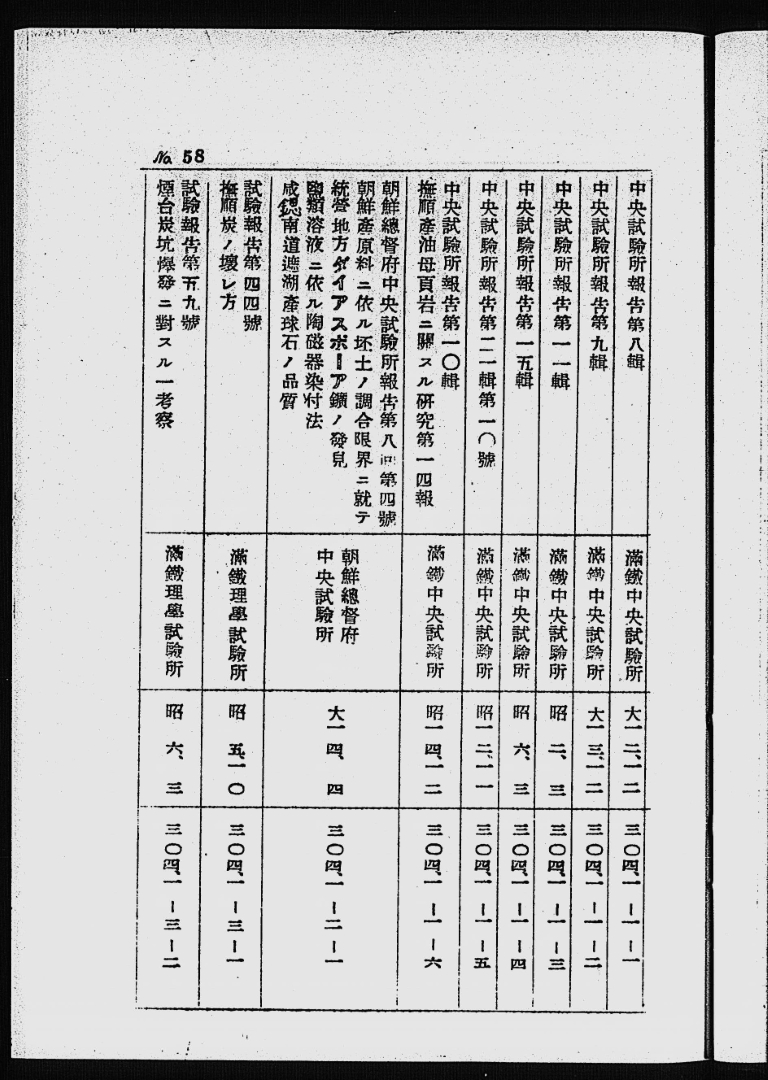 No. 58
中央試驗所報告第八輯
滿鐵中央試驗所
大一二、一二
三〇四、一―一―一
中央試驗所報告第九輯
滿鐵中央試驗所
大一三、一二
三〇四、一―一―二
中央試驗所報告第一一輯
滿鐵中央試驗所
昭二、三
三〇四、一―一―三
中央試驗所報告第一五輯
滿鐵中央試驗所
昭六、三
三〇四、一―一―四
中央試驗所報告第二一輯第一〇號
滿鐵中央試驗所
昭一二、一一
三〇四、一―一―五
中央試驗所報告第一〇輯
撫順產油母頁岩ニ關スル硏究第一四報
滿鐵中央試驗所
昭一四、一二
三〇四、一―一―六
朝鮮總督府中央試驗所報告第八回第四號
朝鮮產原料ニ依ル坯土ノ調合限界ニ就テ
統營地方ダイアスポーア鑛ノ發見
鹽類溶液ニ依ル陶磁器染付法
咸鏡南道遮湖產球石ノ品質
朝鮮總督府
中央試驗所
大一四、四
三〇四、一―二―一
試驗報告第四四號
撫順炭ノ壞レ方
滿鐵理學試驗所
昭五、一〇
三〇四、一―三―一
試驗報告第五九號
煙台炭坑爆發ニ對スル一考察
滿鐵理學試驗所
昭六、三
三〇四、一―三―二